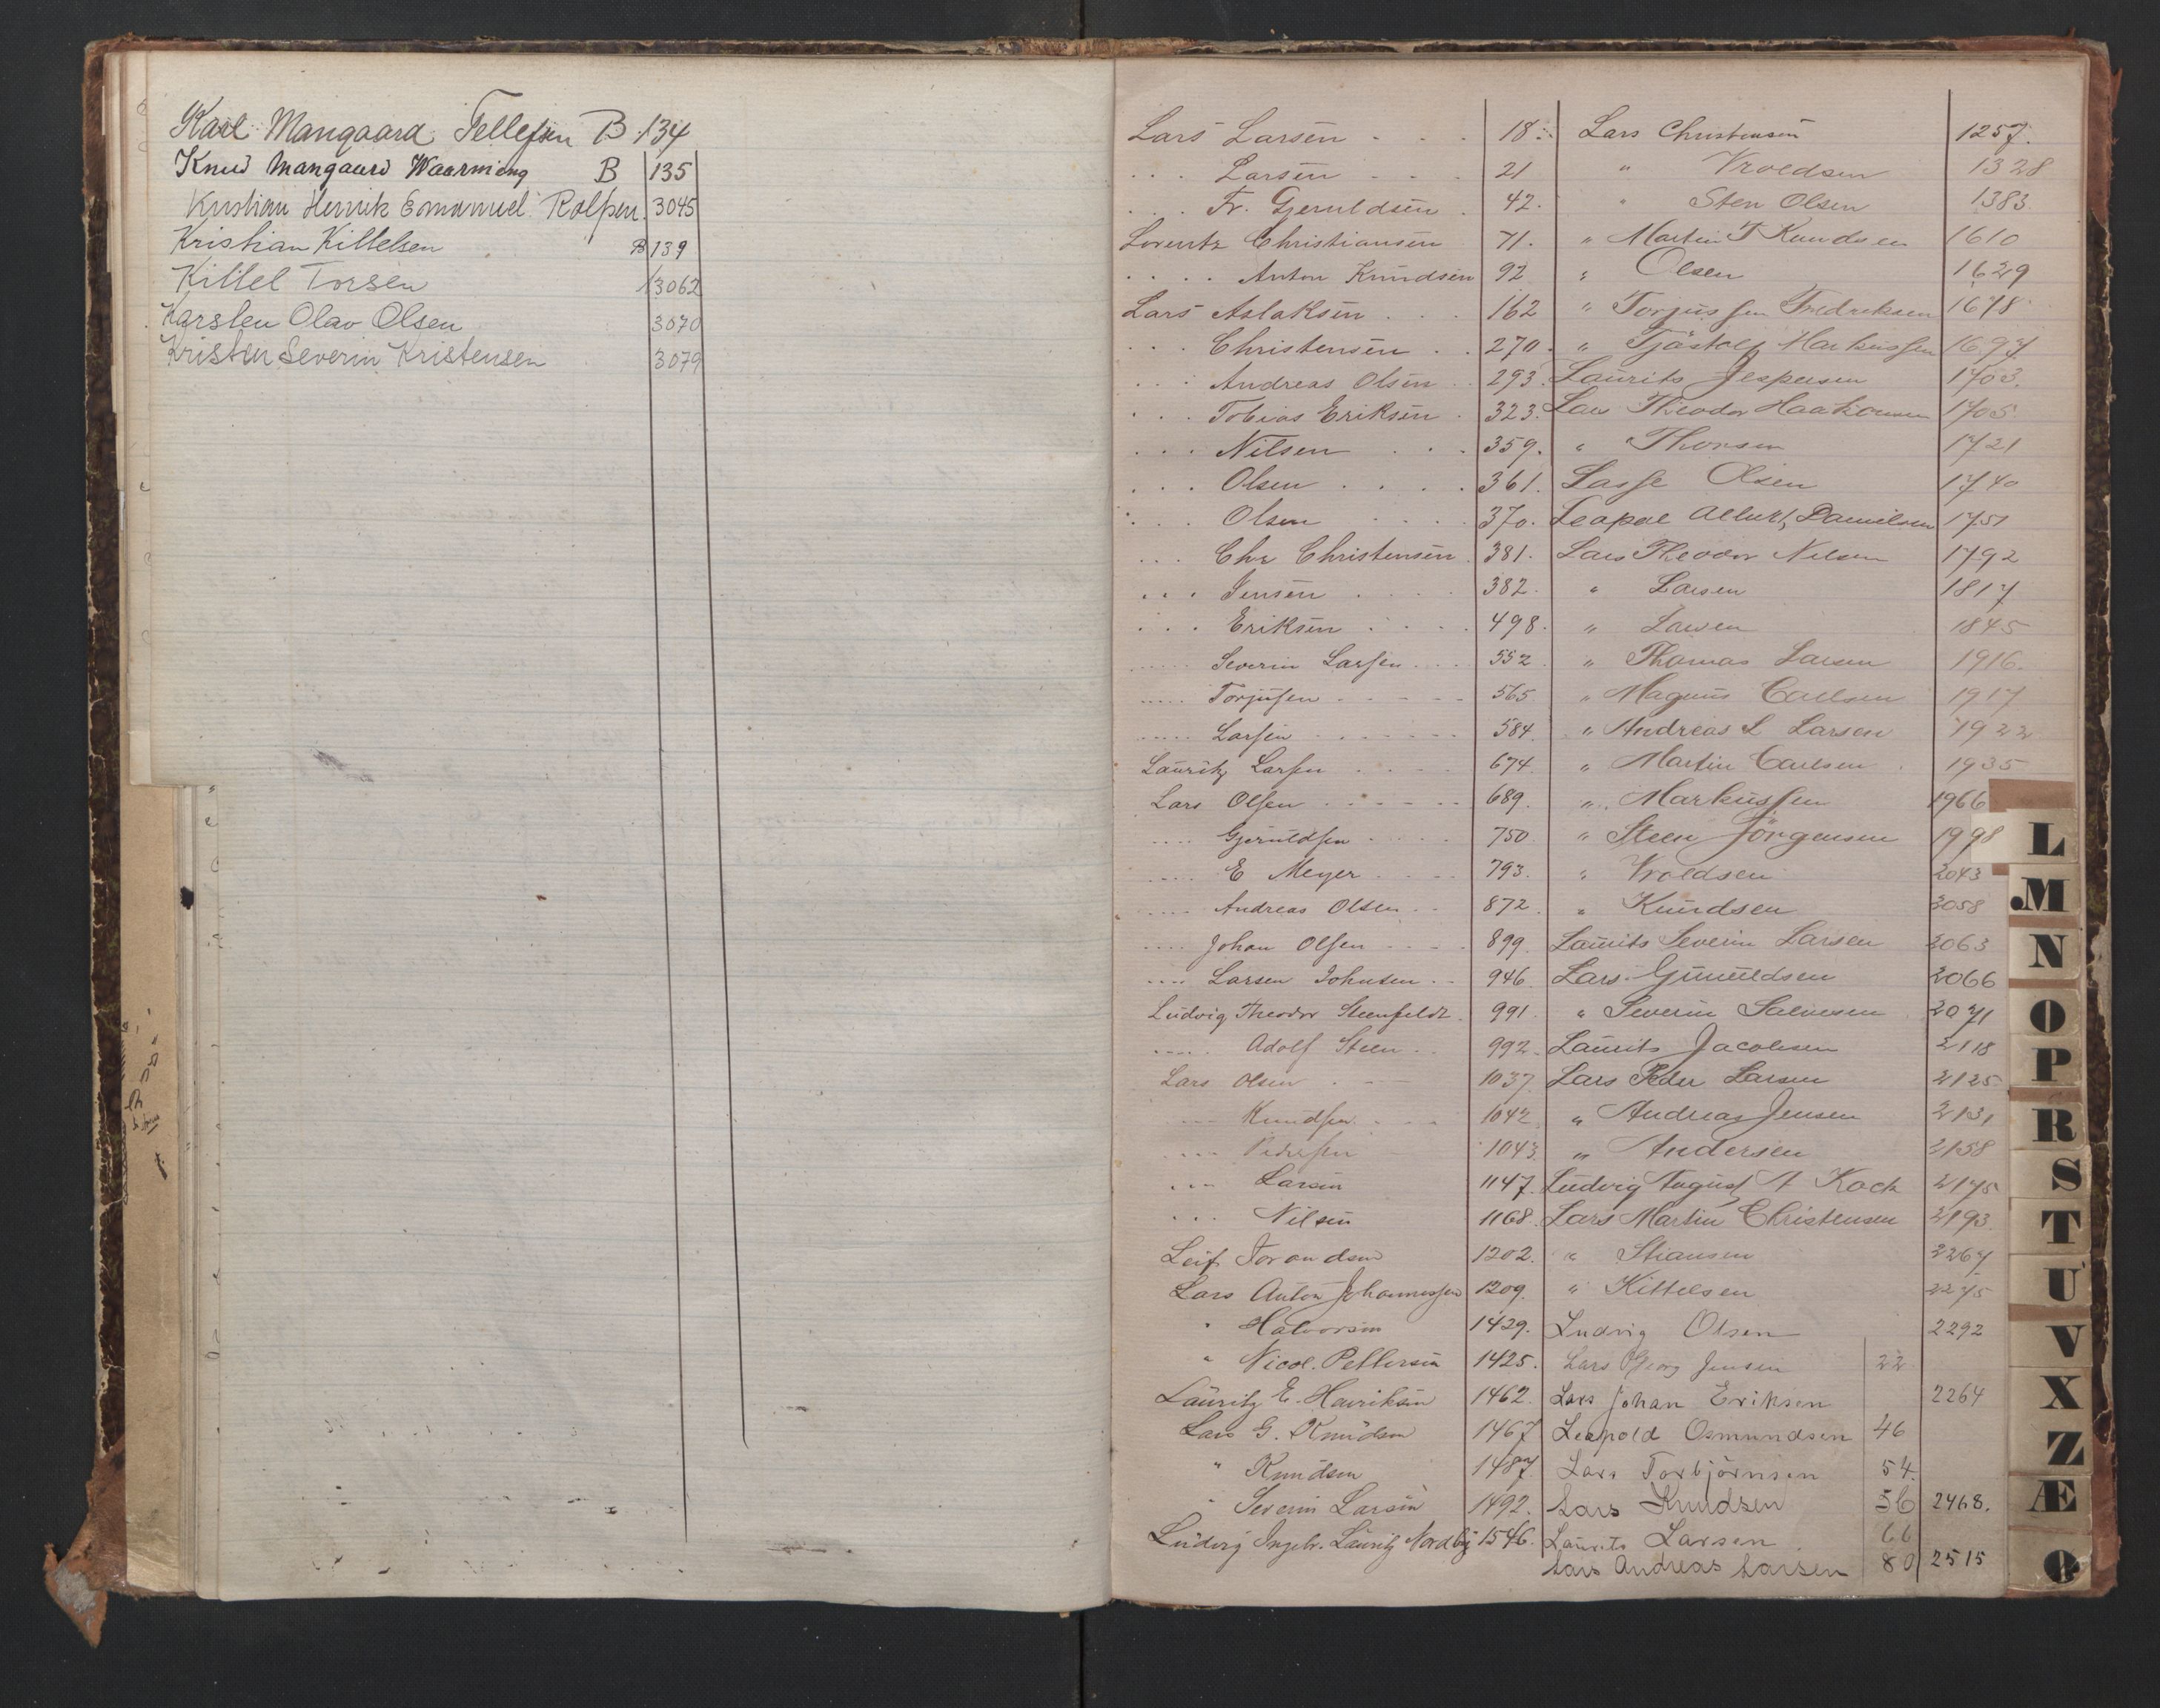 Karl Mangaard Tellefsen B. 134
Knud Mangaard Waarming B 135
Kristian Henrik Emanuel Rolfsen 3045
Kristian Kittelsen B 139
Kittel Torsen 3062
Karsten Olav Olsen 3070
Kristen Severin Kristensen 3079
Lars Larsen . . . 18
. . . Larsen . . . 21
. . . Fr. Gjeruldsen . 42.
Lorentz Christiansen 71.
. . . . Anton Knudsen 92
Lars Aslaksen . . . 162
. . . Christensen . . 270.
. . . Andreas Olsen . . 293.
. . . Tobias Eriksen . 323.
. . . Nilsen . . . 359.
. . . Olsen . . . . 361.
. . . Olsen . . . . 370.
. . . Chr Christensen . 381.
. . . Jensen . . . . 382.
. . . Eriksen . . . . 498.
..... Severin Larsen . . . 552
..... Torjusen - - - - - 565
..... Larsen . . . . . . 584.
Lauritz Larsen . . . . 674.
Lars Olsen . . - - - - 689.
.... Gjeruldsen . . . . . 750
.... E Meyer . . - - 793.
.... Andreas Olsen . . 872
.... Johan Olsen - - - - 899.
.... Larsen Johnsen . . 946
Ludvig Theodor Steenfeldt . 991
.... Adolf Steen . . 992.
Lars Olsen . - - 1037
.... Knudsen . . - - 1042
.... Pedersen - 1043.
. -- Larsen 1147.
. . . Nilsen 1168.
Leif Torandsen 1202.
Lars Anton Johannessen 1209.
" Halvorsen 1429.
" Nicol. Pettersen 1425.
Lauritz E. Henriksen 1462.
Lars G. Knudsen 1467
" Knudsen 1487.
" Severin Larsen 1492.
Ludvig Ingebr. Lauritz Nordby 1546.
Lars Christensen 1257.
" Vroldsen 1328
" Sten Olsen 1383
" Martin T Knudsen 1610
" Olsen 1629
" Torjussen Fredriksen 1678
" Tjøstolf Markussen 1697
Laurits Jespersen 1703.
Lars Theodor Haakonsen 1705
" Thorsen 1721
Lasse Olsen 1740
Leopol Albert, Danielsen 1751
Lars Theodor Nilsen 1792
" Larsen 1817
" Larsen 1845
" Thomas Larsen 1916.
" Magnus Carlsen 1917
" Andreas L Larsen 1922
" Martin Carlsen 1935
" Markussen 1966
" Steen Jörgensen 1998
" Vroldsen 2043
" Knudsen 2058
Laurits Severin Larsen 2063
Lars Gjeruldsen 2066
" Severin Salvesen 2071
Laurits Jacobsen 2118
Lars Peder Larsen 2125
" Andreas Jensen 2131
" Andersen 2158
Ludvig August A Koch 2175
Lars Martin Christensen 2193
" Stiansen 2267
" Kittelsen 2275
Ludvig Olsen 2292
Lars Georg Jensen 22
Lars Johan Eriksen 2264
Leopold Osmundsen 46
Lars Torbjörnsen 54.
Lars Knudsen 56 2468.
Laurits Larsen 66
Lars Andreas Larsen 80 2515
L
M
N
O
P
R
S
T
U
V
X
Z
Æ
Ø